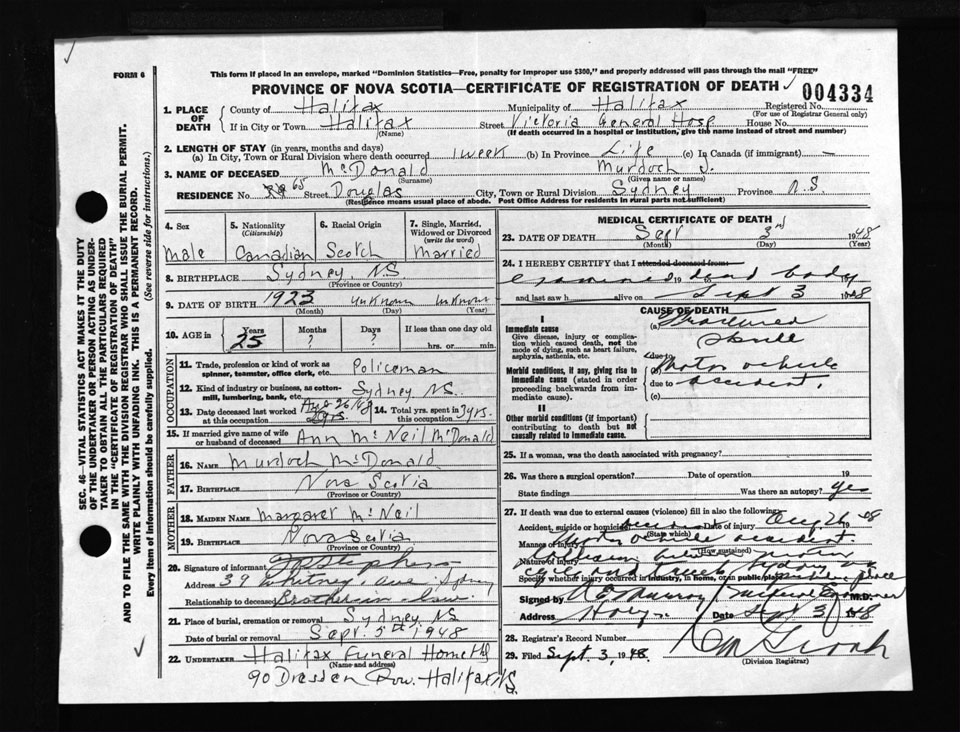 FORM 6
This form if placed in an envelope, marked "Dominion Statistics—Free, penalty for improper use $300," and properly addressed will pass through the mail "FREE"
PROVINCE OF NOVA SCOTIA—CERTIFICATE OF REGISTRATION OF DEATH
004334
1. PLACE OF DEATH
County of Halifax Municipality of Halifax Registered No.
(For use of Registrar General only)
If in City or Town Halifax Street Victoria General Hosp House No.
(Name) (If death occurred in a hospital or institution, give the name instead of street and number)
2. LENGTH OF STAY (in years, months and days)
(a) In City, Town or Rural Division where death occurred 1 week (b) In Province Life (c) In Canada (if immigrant) —
3. NAME OF DECEASED McDonald Murdoch J.
(Surname) (Given name or names)
RESIDENCE No. 65 Street Douglas City, Town or Rural Division Sydney Province N.S.
(Residence means usual place of abode. Post Office Address for residents in rural parts not sufficient)
4. Sex
Male
5. Nationality
(Citizenship)
Canadian
6. Racial Origin
Scotch
7. Single, Married, Widowed or Divorced
(write the word)
Married
8. BIRTHPLACE Sydney, N.S
(Province or Country)
9. DATE OF BIRTH 1923 unknown unknown
(Month) (Day) (Year)
10. AGE in
Years Months Days If less than one day old
25 ? ? hrs. or min.
OCCUPATION
11. Trade, profession or kind of work as spinner, teamster, office clerk, etc. Policeman
12. Kind of industry or business, as cotton-mill, lumbering, bank, etc. Sydney N.S.
13. Date deceased last worked at this occupation Aug 26/48
14. Total yrs. spent in this occupation 3 yrs.
15. If married give name of wife or husband of deceased Ann McNeil McDonald
FATHER
16. NAME Murdoch McDonald
17. BIRTHPLACE Nova Scotia
(Province or Country)
MOTHER
18. MAIDEN NAME Margaret McNeil
19. BIRTHPLACE Nova Scotia
(Province or Country)
20. Signature of informant Stephens
Address 39 Whitney Ave Sydney
Relationship to deceased Brother in law
21. Place of burial, cremation or removal Sydney NS
Date of burial or removal Sept. 5th 1948
22. UNDERTAKER Halifax Funeral Home Ltd
(Name and address)
90 Dresden Row. Halifax N.S.
MEDICAL CERTIFICATE OF DEATH
23. DATE OF DEATH Sept 3rd 1948
(Month) (Day) (Year)
24. I HEREBY CERTIFY that I attended deceased from:
examined 19 dead body
and last saw h alive on Sept 3 1948
CAUSE OF DEATH
I
Immediate cause
Give disease, injury or complication which caused death, not the mode of dying, such as heart failure, asphyxia, asthenia, etc.
(a) Fractured
Skull
Morbid conditions, if any, giving rise to immediate cause (stated in order proceeding backwards from immediate cause).
(due to Motor vehicle
due to accident.
(c)
II
Other morbid conditions (if important) contributing to death but not causally related to immediate cause.
25. If a woman, was the death associated with pregnancy?
26. Was there a surgical operation? Date of operation 19
State findings Was there an autopsy? yes
27. If death was due to external causes (violence) fill in also the following:
Accident, suicide or homicide accident Date of injury Aug 26 1948
(State which)
Manner of injury Motor vehicle accident
(How sustained)
Nature of injury Collision between motor
cycle and truck Sydney
Specify whether injury occurred in industry, in home, or in public place place
Signed by Murray Medical Examiner M.D.
Address Date Sept 3 1948
28. Registrar's Record Number
29. Filed Sept. 3, 1948.
(Division Registrar)
SEC. 46—VITAL STATISTICS ACT MAKES IT THE DUTY OF THE UNDERTAKER OR PERSON ACTING AS UNDERTAKER TO OBTAIN ALL THE PARTICULARS REQUIRED IN THE "CERTIFICATE OF REGISTRATION OF DEATH"
AND TO FILE THE SAME WITH THE DIVISION REGISTRAR WHO SHALL ISSUE THE BURIAL PERMIT.
WRITE PLAINLY WITH UNFADING INK. THIS IS A PERMANENT RECORD.
Every item of information should be carefully supplied. (See reverse side for instructions.)